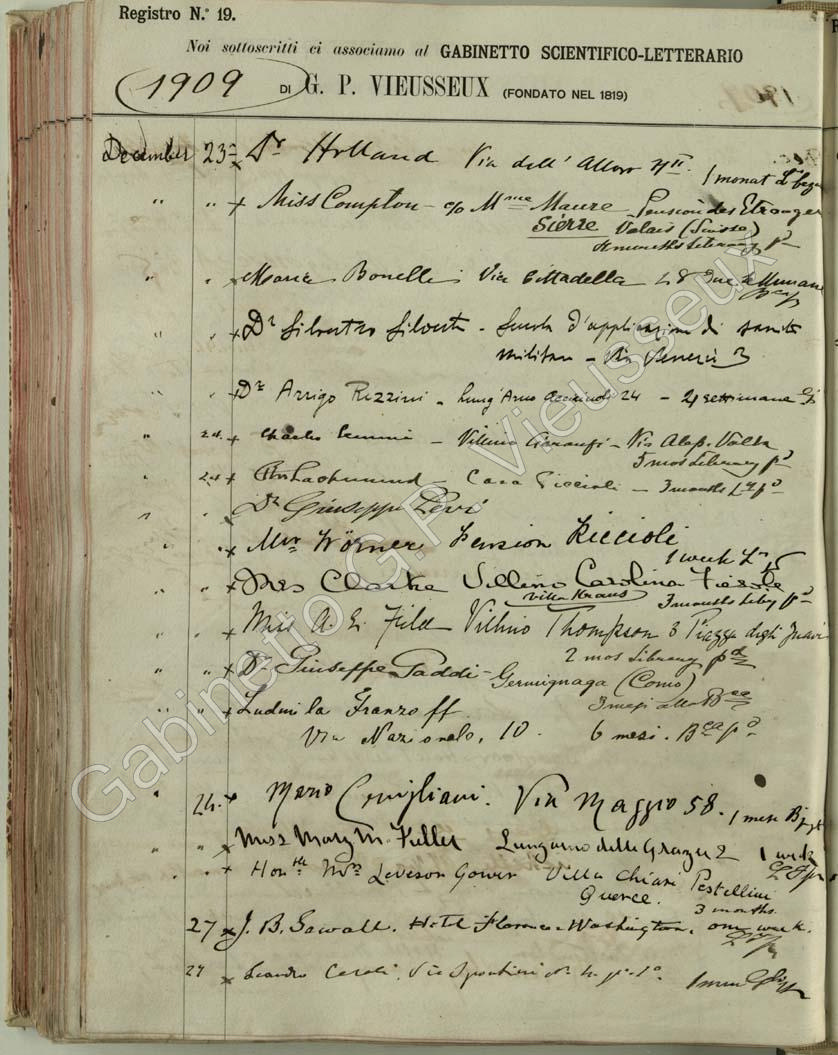 Registro N.° 19.
Noi sottoscritti ci associamo al GABINETTO SCIENTIFICO-LETTERARIO
1909 DI G. P. VIEUSSEUX (FONDATO NEL 1819)
December 23 Dr Holland Via dell' Alloro
1 monat
" " x Miss Compton - c/o Mme Maure Pension des Etranger
Sierre Valais (Suisse)
months Library pd
" " x Maria Bonelli Via Cittadella
x Dr Silvestro Silvestri - Scuola d'applicazione di sanità
militare - Via Venezia 3
" " x Dr Arrigo Rizzini - Lung'Arno Acciaioli 24 - 4 settimane
" 24 x Charles - Villino - Via Aless. Volta
3 mos Library pd
" 24 x Casa Piccioli - 3 months
Dr Giuseppe Levi
x Mrs Wörner, Pension Riccioli
1 week
" x Mrs Clarke Villino Carolina Fiesole
Villa Kraus 3 months Liby pd
" " x Miss A. E. Field Villino Thompson 3 Piazza degli
2 mos Library pd
" " x Dr Giuseppe Taddi - Germignaga (Como)
3 mesi alla Bca
" " x Ludmila Franzoff
Via Nazionale, 10. 6 mesi. Bca pd
" 24. x Mario Conigliani. Via Maggio 58. 1 mese
" " x Miss Mary M. Fuller Lungarno delle Grazie 2 1 week
" x Honble Mrs Leveson Gower Villa Chiari Pestellini
Querce. 3 months.
27 x J. B. Sawall. Hotel Florence Washington, one week.
27 x Leandro Via Spontini No 4 po 1o.
Gabinetto G.P. Vieusseux